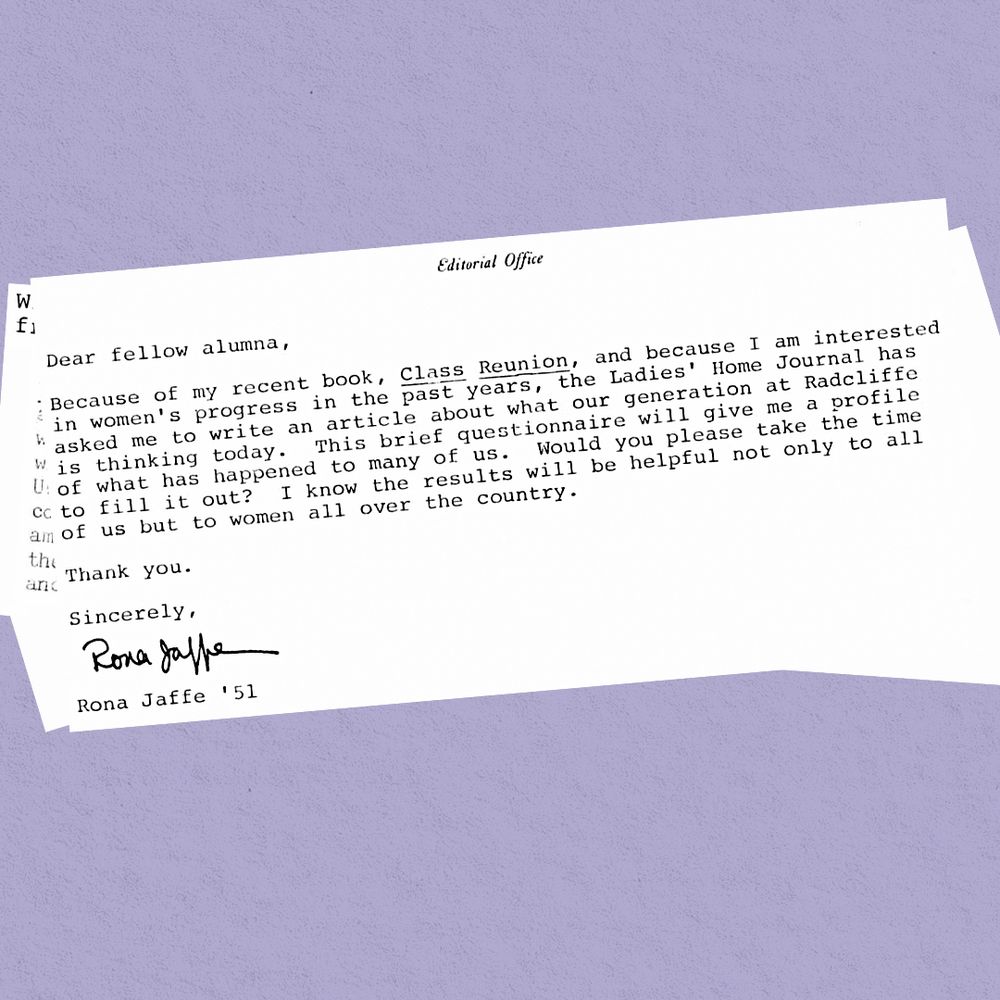 Editorial Office
Dear fellow alumna,
Because of my recent book, Class Reunion, and because I am interested
in women's progress in the past years, the Ladies' Home Journal has
asked me to write an article about what our generation at Radcliffe
is thinking today. This brief questionnaire will give me a profile
of what has happened to many of us. Would you please take the time
to fill it out? I know the results will be helpful not only to all
of us but to women all over the country.
Thank you.
Sincerely,
Rona Jaffe
Rona Jaffe '51